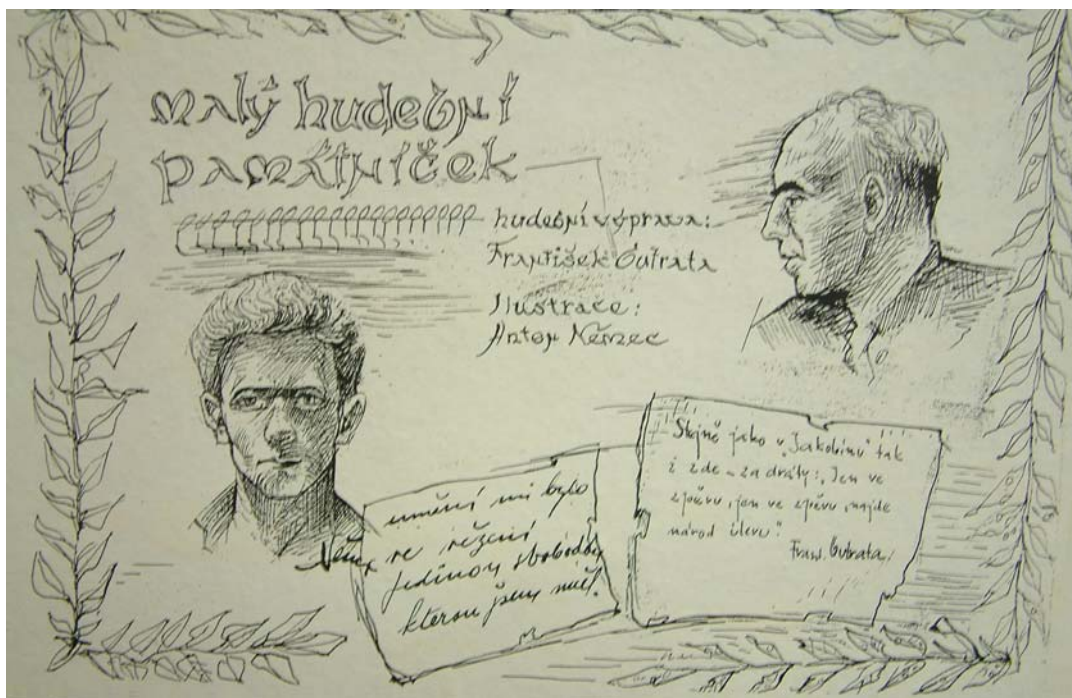 malý hudební
památníček
hudební výprava:
František Gutrata
Ilustrace:
Anton Němec
umění mi bylo
ve vězení
jedinou svobodou
kterou jsem měl.
Němec
Stejně jako v "Jakobínu" tak
i zde - za dráty: "Jen ve
zpěvu, jen ve zpěvu, najde
národ úlevu."
Frant. Gutrata.